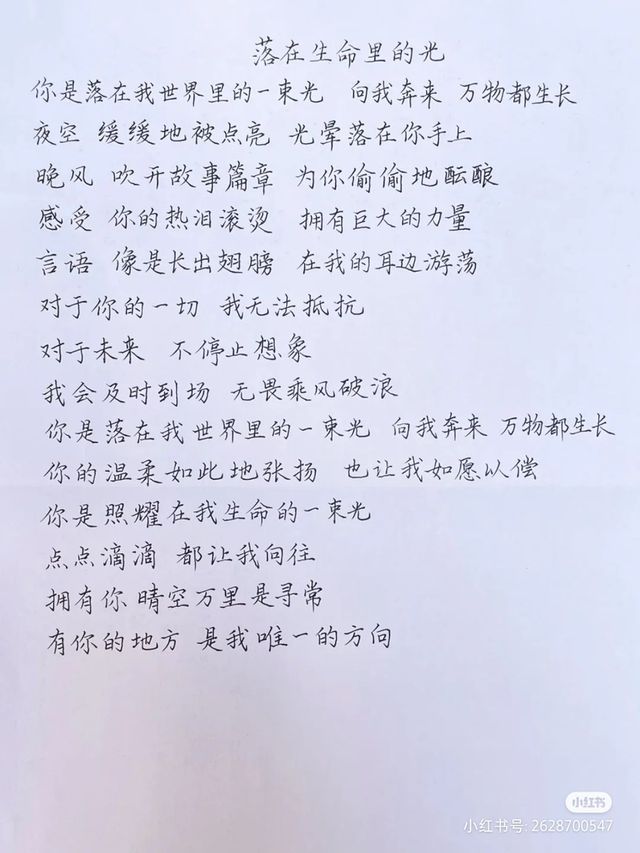 落在生命里的光
你是落在我世界里的一束光 向我奔来 万物都生长
夜空 缓缓地被点亮 光晕落在你手上
晚风 吹开故事篇章 为你偷偷地酝酿
感受 你的热泪滚烫 拥有巨大的力量
言语 像是长出翅膀 在我的耳边游荡
对于你的一切 我无法抵抗
对于未来 不停止想象
我会及时到场 无畏乘风破浪
你是落在我世界里的一束光 向我奔来 万物都生长
你的温柔如此地张扬 也让我如愿以偿
你是照耀在我生命的一束光
点点滴滴 都让我向往
拥有你 晴空万里是寻常
有你的地方 是我唯一的方向
小红书
小红书号: 2628700547